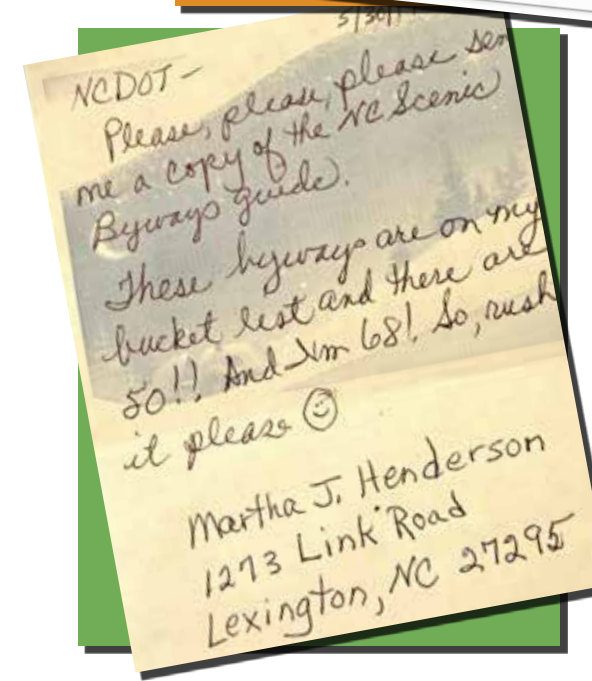 5/30/1
NCDOT -
Please, please, please sen
me a copy of the NC Scenic
Byways guide.
These byways are on my
bucket list and there are
50!! And I'm 68! So, rush
it please ☺
Martha J. Henderson
1273 Link Road
Lexington, NC 27295